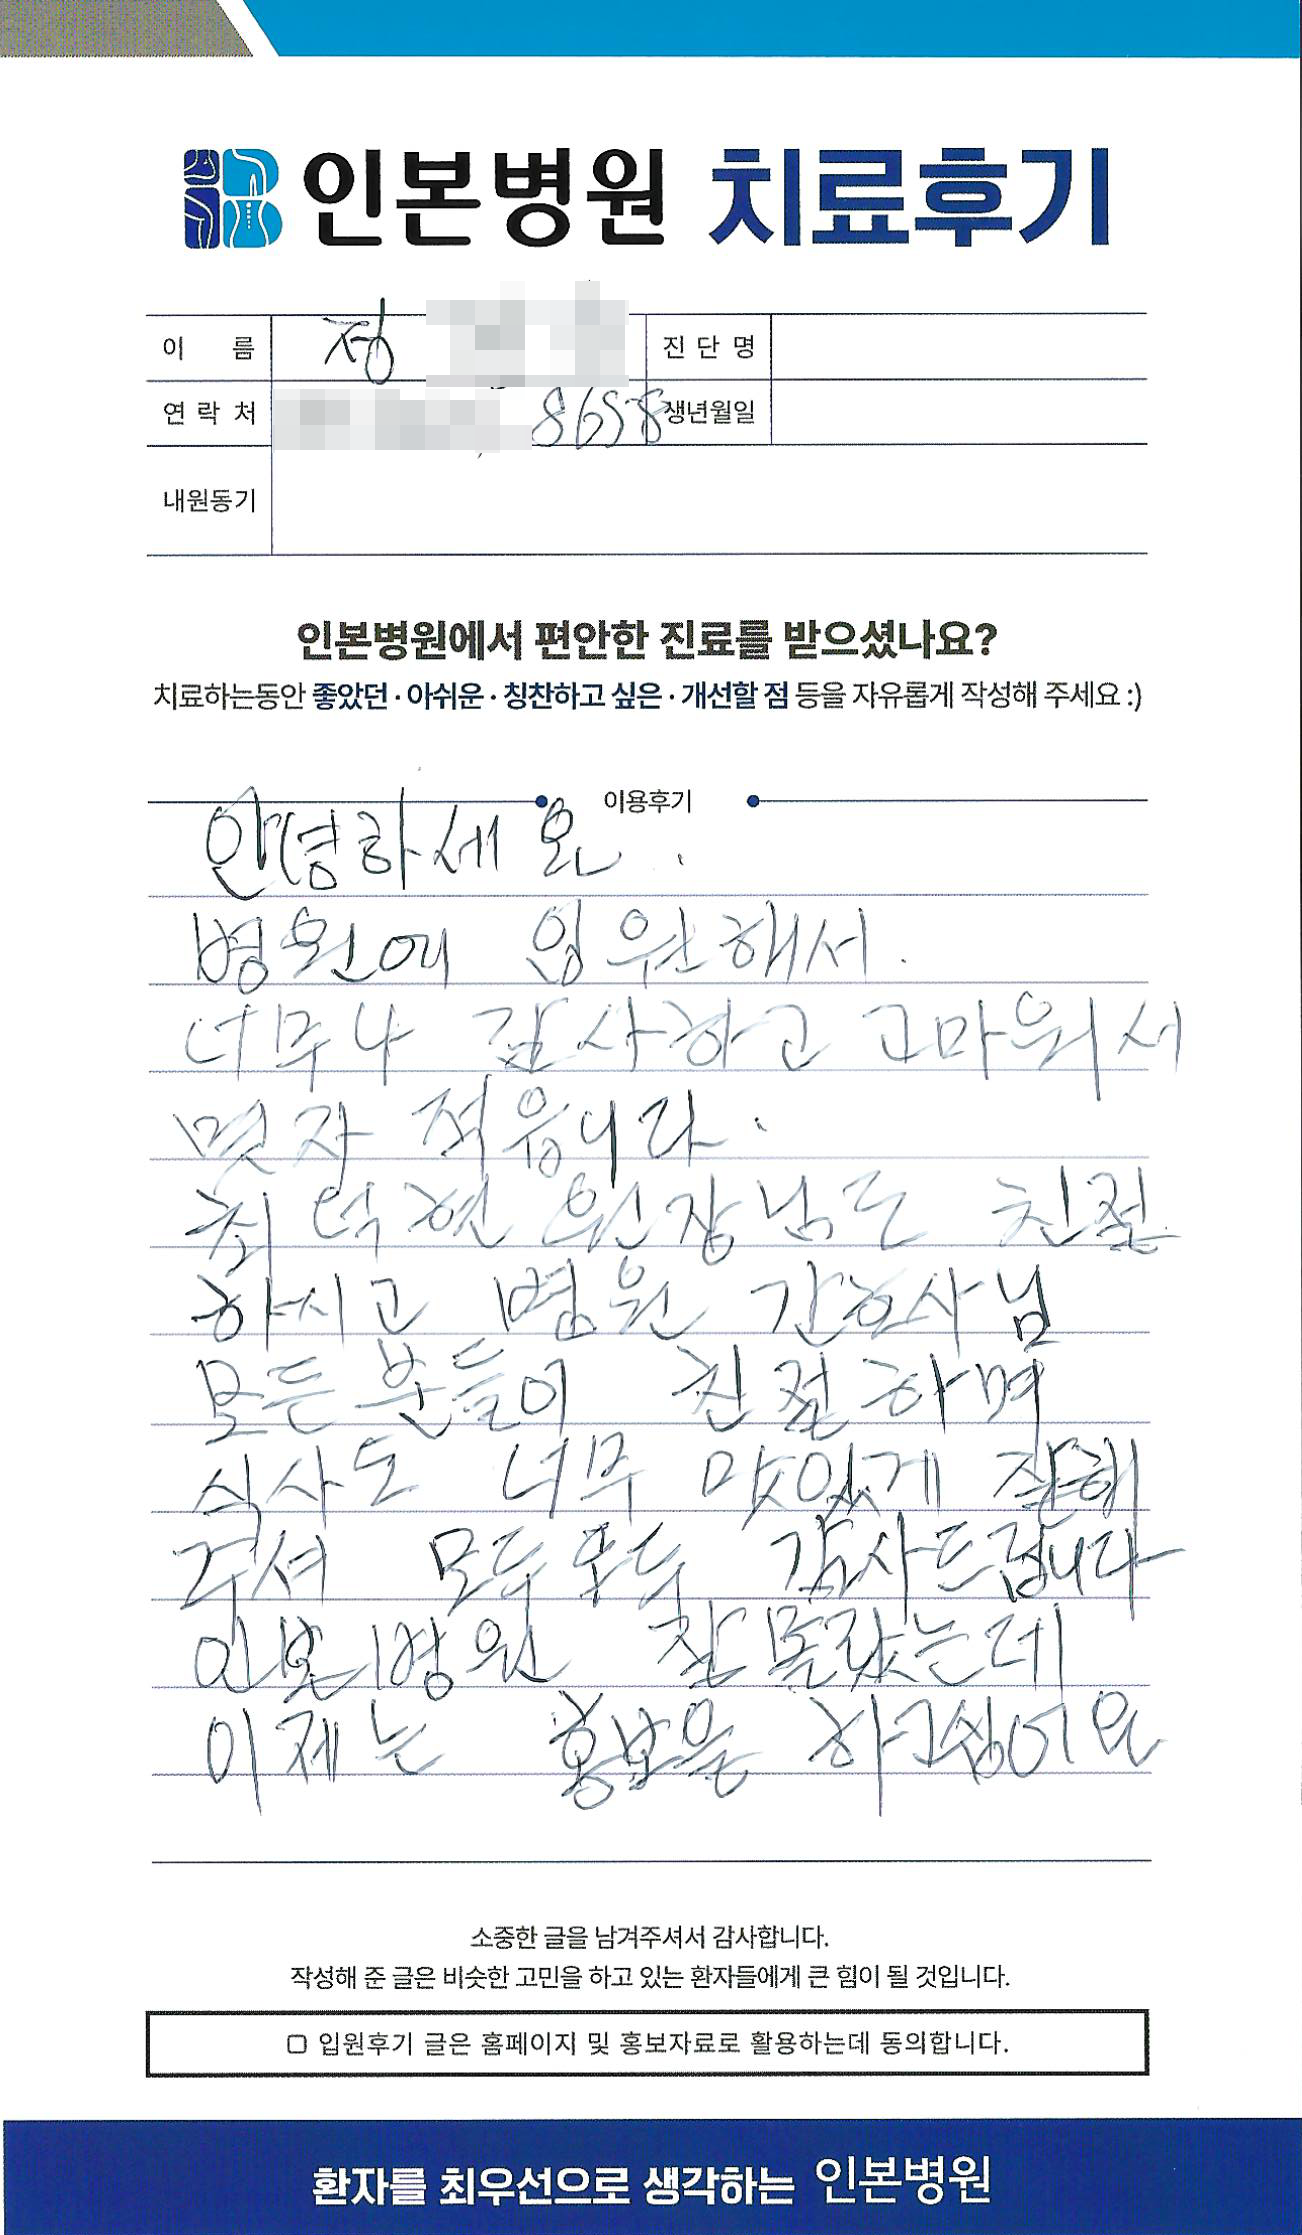 인본병원 치료후기
이 름 정 진 단 명
연 락 처 8658 생년월일
내원동기
인본병원에서 편안한 진료를 받으셨나요?
치료하는동안 좋았던 · 아쉬운 · 칭찬하고 싶은 · 개선할 점 등을 자유롭게 작성해 주세요 :)
이용후기
안녕하세요.
병원에 입원해서.
너무나 감사하고 고마워서
몇자 적읍니다.
최덕현 원장님도 친절
하시고 병원 간호사님
모든분들이 친절하며
식사도 너무 맛있게 잘해
주셔 모두모두 감사드립니다
인본병원 잘 몰랐는데
이제는 홍보을 하고싶어요
소중한 글을 남겨주셔서 감사합니다.
작성해 준 글은 비슷한 고민을 하고 있는 환자들에게 큰 힘이 될 것입니다.
▢ 입원후기 글은 홈페이지 및 홍보자료로 활용하는데 동의합니다.
환자를 최우선으로 생각하는 인본병원